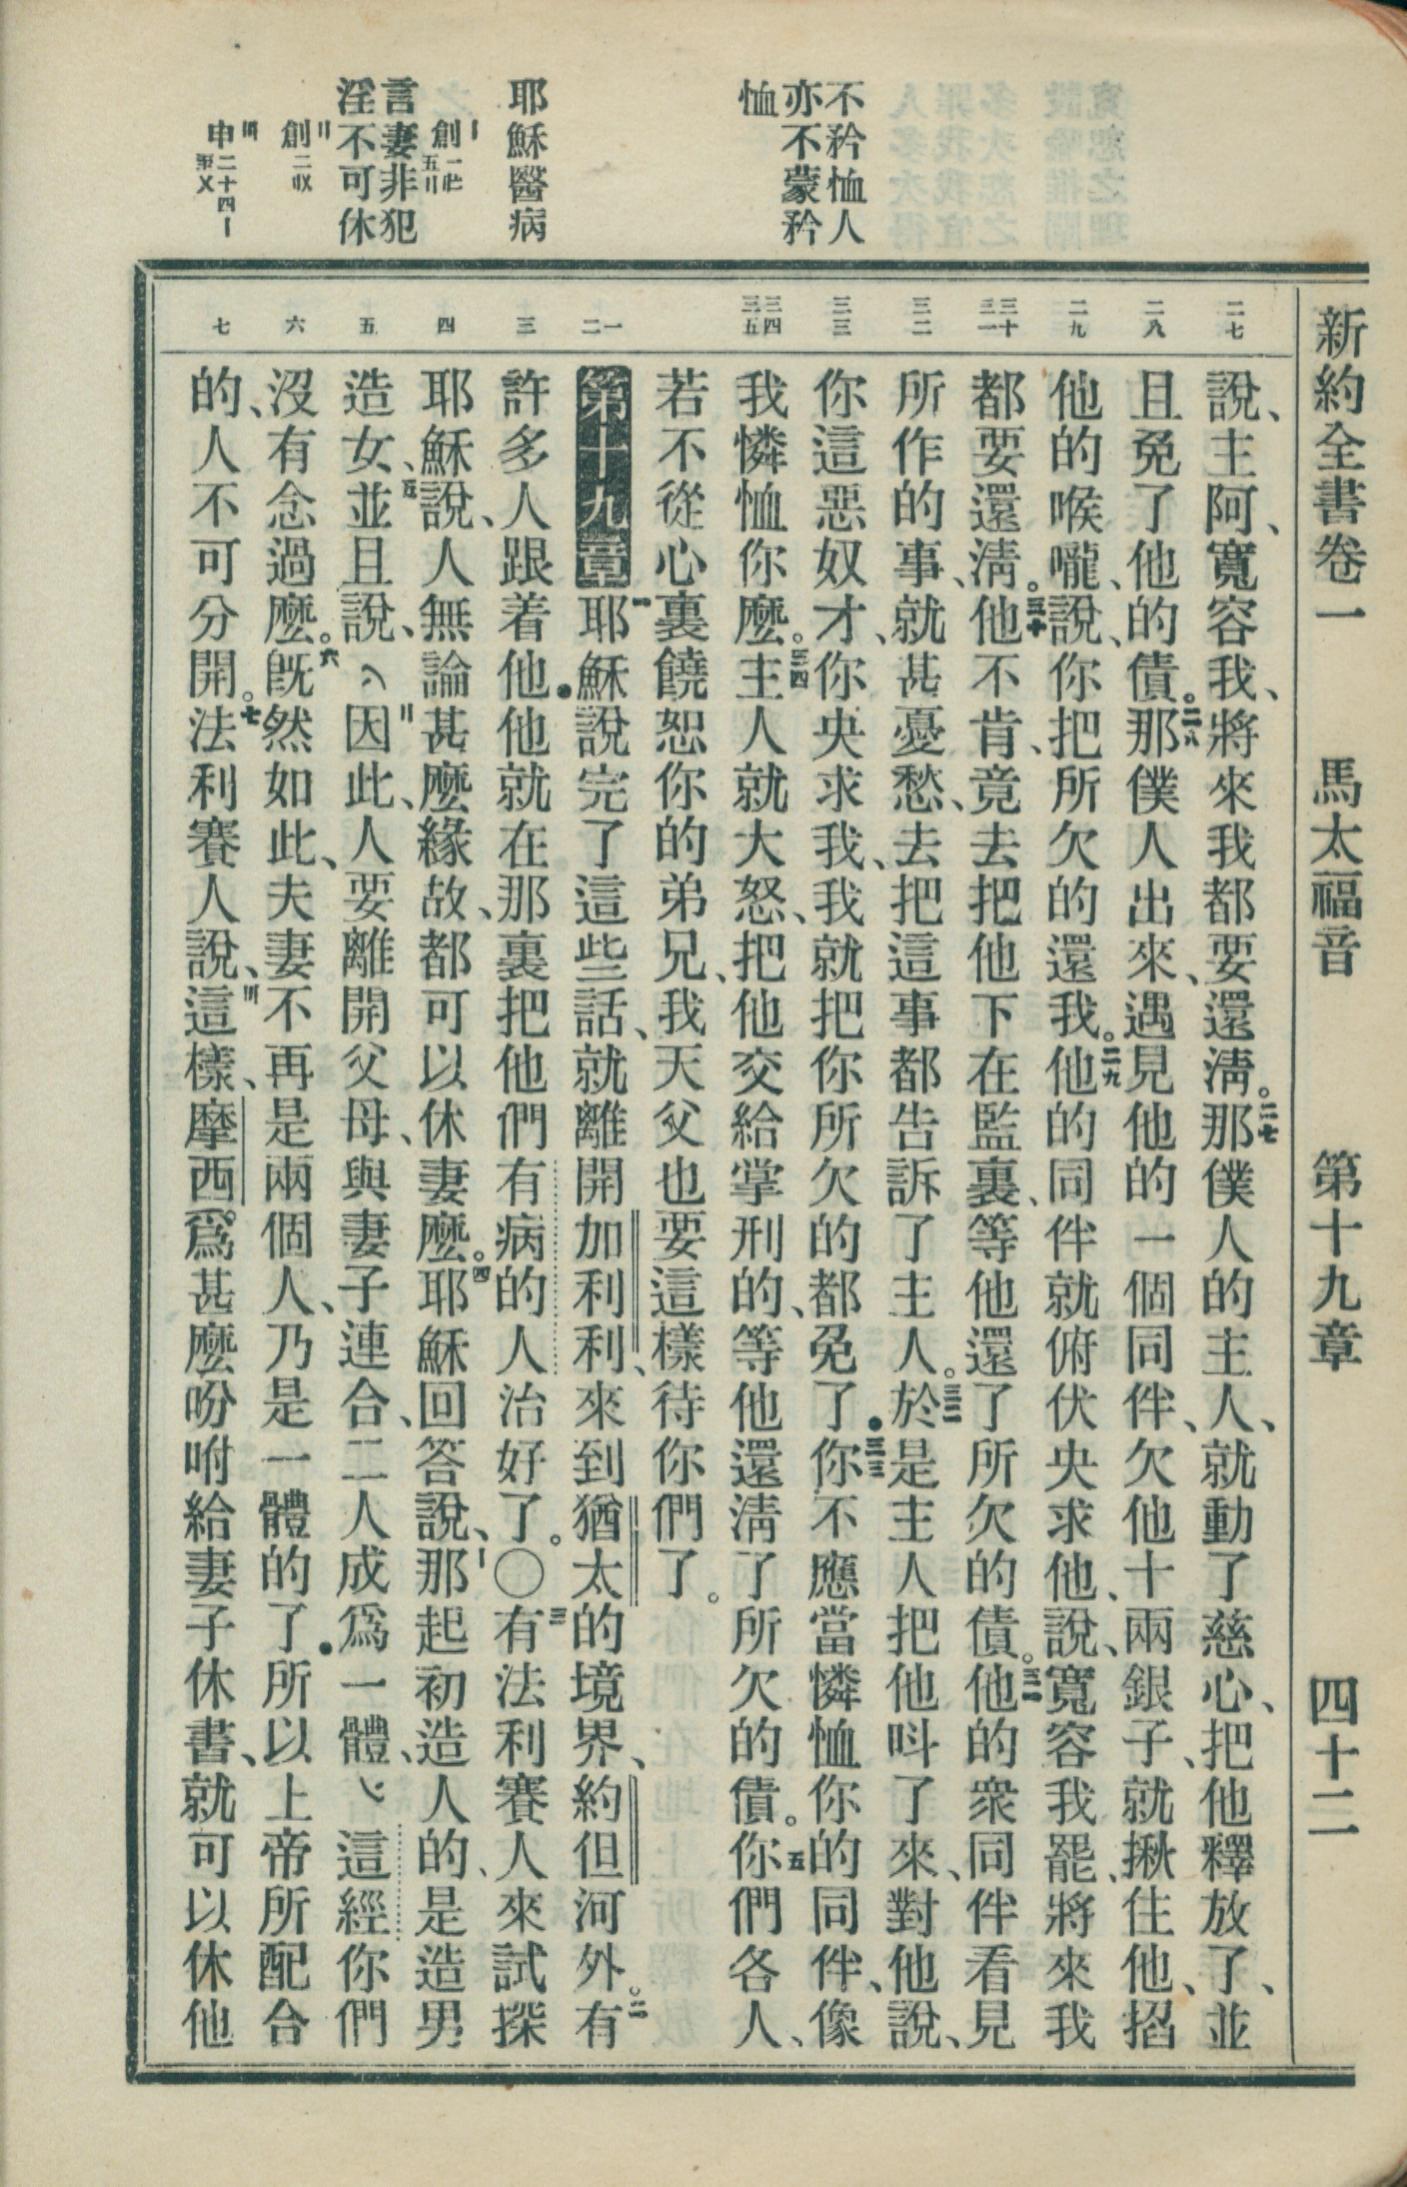 新約全書卷一　馬太福音　第十九章　四十二
不矜恤人
亦不蒙矜
恤
耶穌醫病
創一卄七
五〢
言妻非犯
淫不可休
〢創二〤
〣申二十四〡
二七
說、主阿、寬容我、將來我都要還清。二七那僕人的主人、就動了慈心、把他釋放了、並
二八
且免了他的債。二八那僕人出來、遇見他的一個同伴、欠他十兩銀子、就揪住他、掐
二九
他的喉嚨、說、你把所欠的還我。二九他的同伴就俯伏央求他、說、寬容我罷、將來我
三十
三一
都要還清。三十他不肯、竟去把他下在監裏、等他還了所欠的債。三一他的衆同伴看見
三二
所作的事、就甚憂愁、去把這事都告訴了主人。三二於是主人把他呌了來、對他說、
三三
你這惡奴才、你央求我、我就把你所欠的都免了．三三你不應當憐恤你的同伴、像
三四
三五
我憐恤你麽。三四主人就大怒、把他交給掌刑的、等他還清了所欠的債。五你們各人、
若不從心裏饒恕你的弟兄、我天父也要這樣待你們了。
一
二
第十九章一耶穌說完了這些話、就離開加利利、來到猶太的境界、約但河外。二有
三
許多人跟着他．他就在那裏把他們有病的人治好了。〇三有法利賽人來試探
四
耶穌說、人無論甚麽緣故、都可以休妻麽。四耶穌回答說、〡那起初造人的、是造男
五
造女、五並且說、〢因此、人要離開父母、與妻子連合、二人成爲一體、這經你們
六
沒有念過麽。六旣然如此、夫妻不再是兩個人、乃是一體的了．所以上帝所配合
七
的、人不可分開。七法利賽人說、〣這樣、摩西爲甚麽吩咐給妻子休書、就可以休他